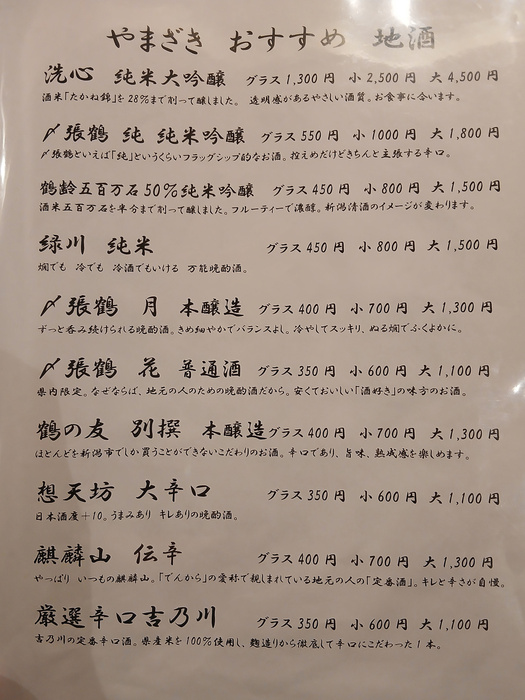 やまざき おすすめ 地酒
洗心 純米大吟醸 グラス 1,300 円 小 2,500 円 大 4,500 円
酒米「たかね錦」を 28%まで削って醸しました。 透明感があるやさしい酒質。お食事に合います。
〆張鶴 純 純米吟醸 グラス 550 円 小 1000 円 大 1,800 円
〆張鶴といえば「純」というくらいフラッグシップ的なお酒。控えめだけどきちんと主張する辛口。
鶴齢五百万石 50%純米吟醸 グラス 450 円 小 800 円 大 1,500 円
酒米五百万石を半分まで削って醸しました。フルーティーで濃醇。新潟清酒のイメージが変わります。
緑川 純米 グラス 450 円 小 800 円 大 1,500 円
燗でも 冷でも 冷酒でもいける 万能晩酌酒。
〆張鶴 月 本醸造 グラス 400 円 小 700 円 大 1,300 円
ずっと呑み続けられる晩酌酒。きめ細やかでバランスよし。冷やしてスッキリ、ぬる燗でふくよかに。
〆張鶴 花 普通酒 グラス 350 円 小 600 円 大 1,100 円
県内限定。なぜならば、地元の人のための晩酌酒だから。安くておいしい「酒好き」の味方のお酒。
鶴の友 別撰 本醸造 グラス 400 円 小 700 円 大 1,300 円
ほとんどを新潟市でしか買うことができないこだわりのお酒。辛口であり、旨味、熟成感を楽しめます。
想天坊 大辛口 グラス 350 円 小 600 円 大 1,100 円
日本酒度+10。うまみあり キレありの晩酌酒。
麒麟山 伝辛 グラス 400 円 小 700 円 大 1,300 円
やっぱり いつもの麒麟山。「でんから」の愛称で親しまれている地元の人の「定番酒」。キレと辛さが自慢。
厳選辛口吉乃川 グラス 350 円 小 600 円 大 1,100 円
吉乃川の定番辛口酒。県産米を 100%使用し、麹造りから徹底して辛口にこだわった 1 本。